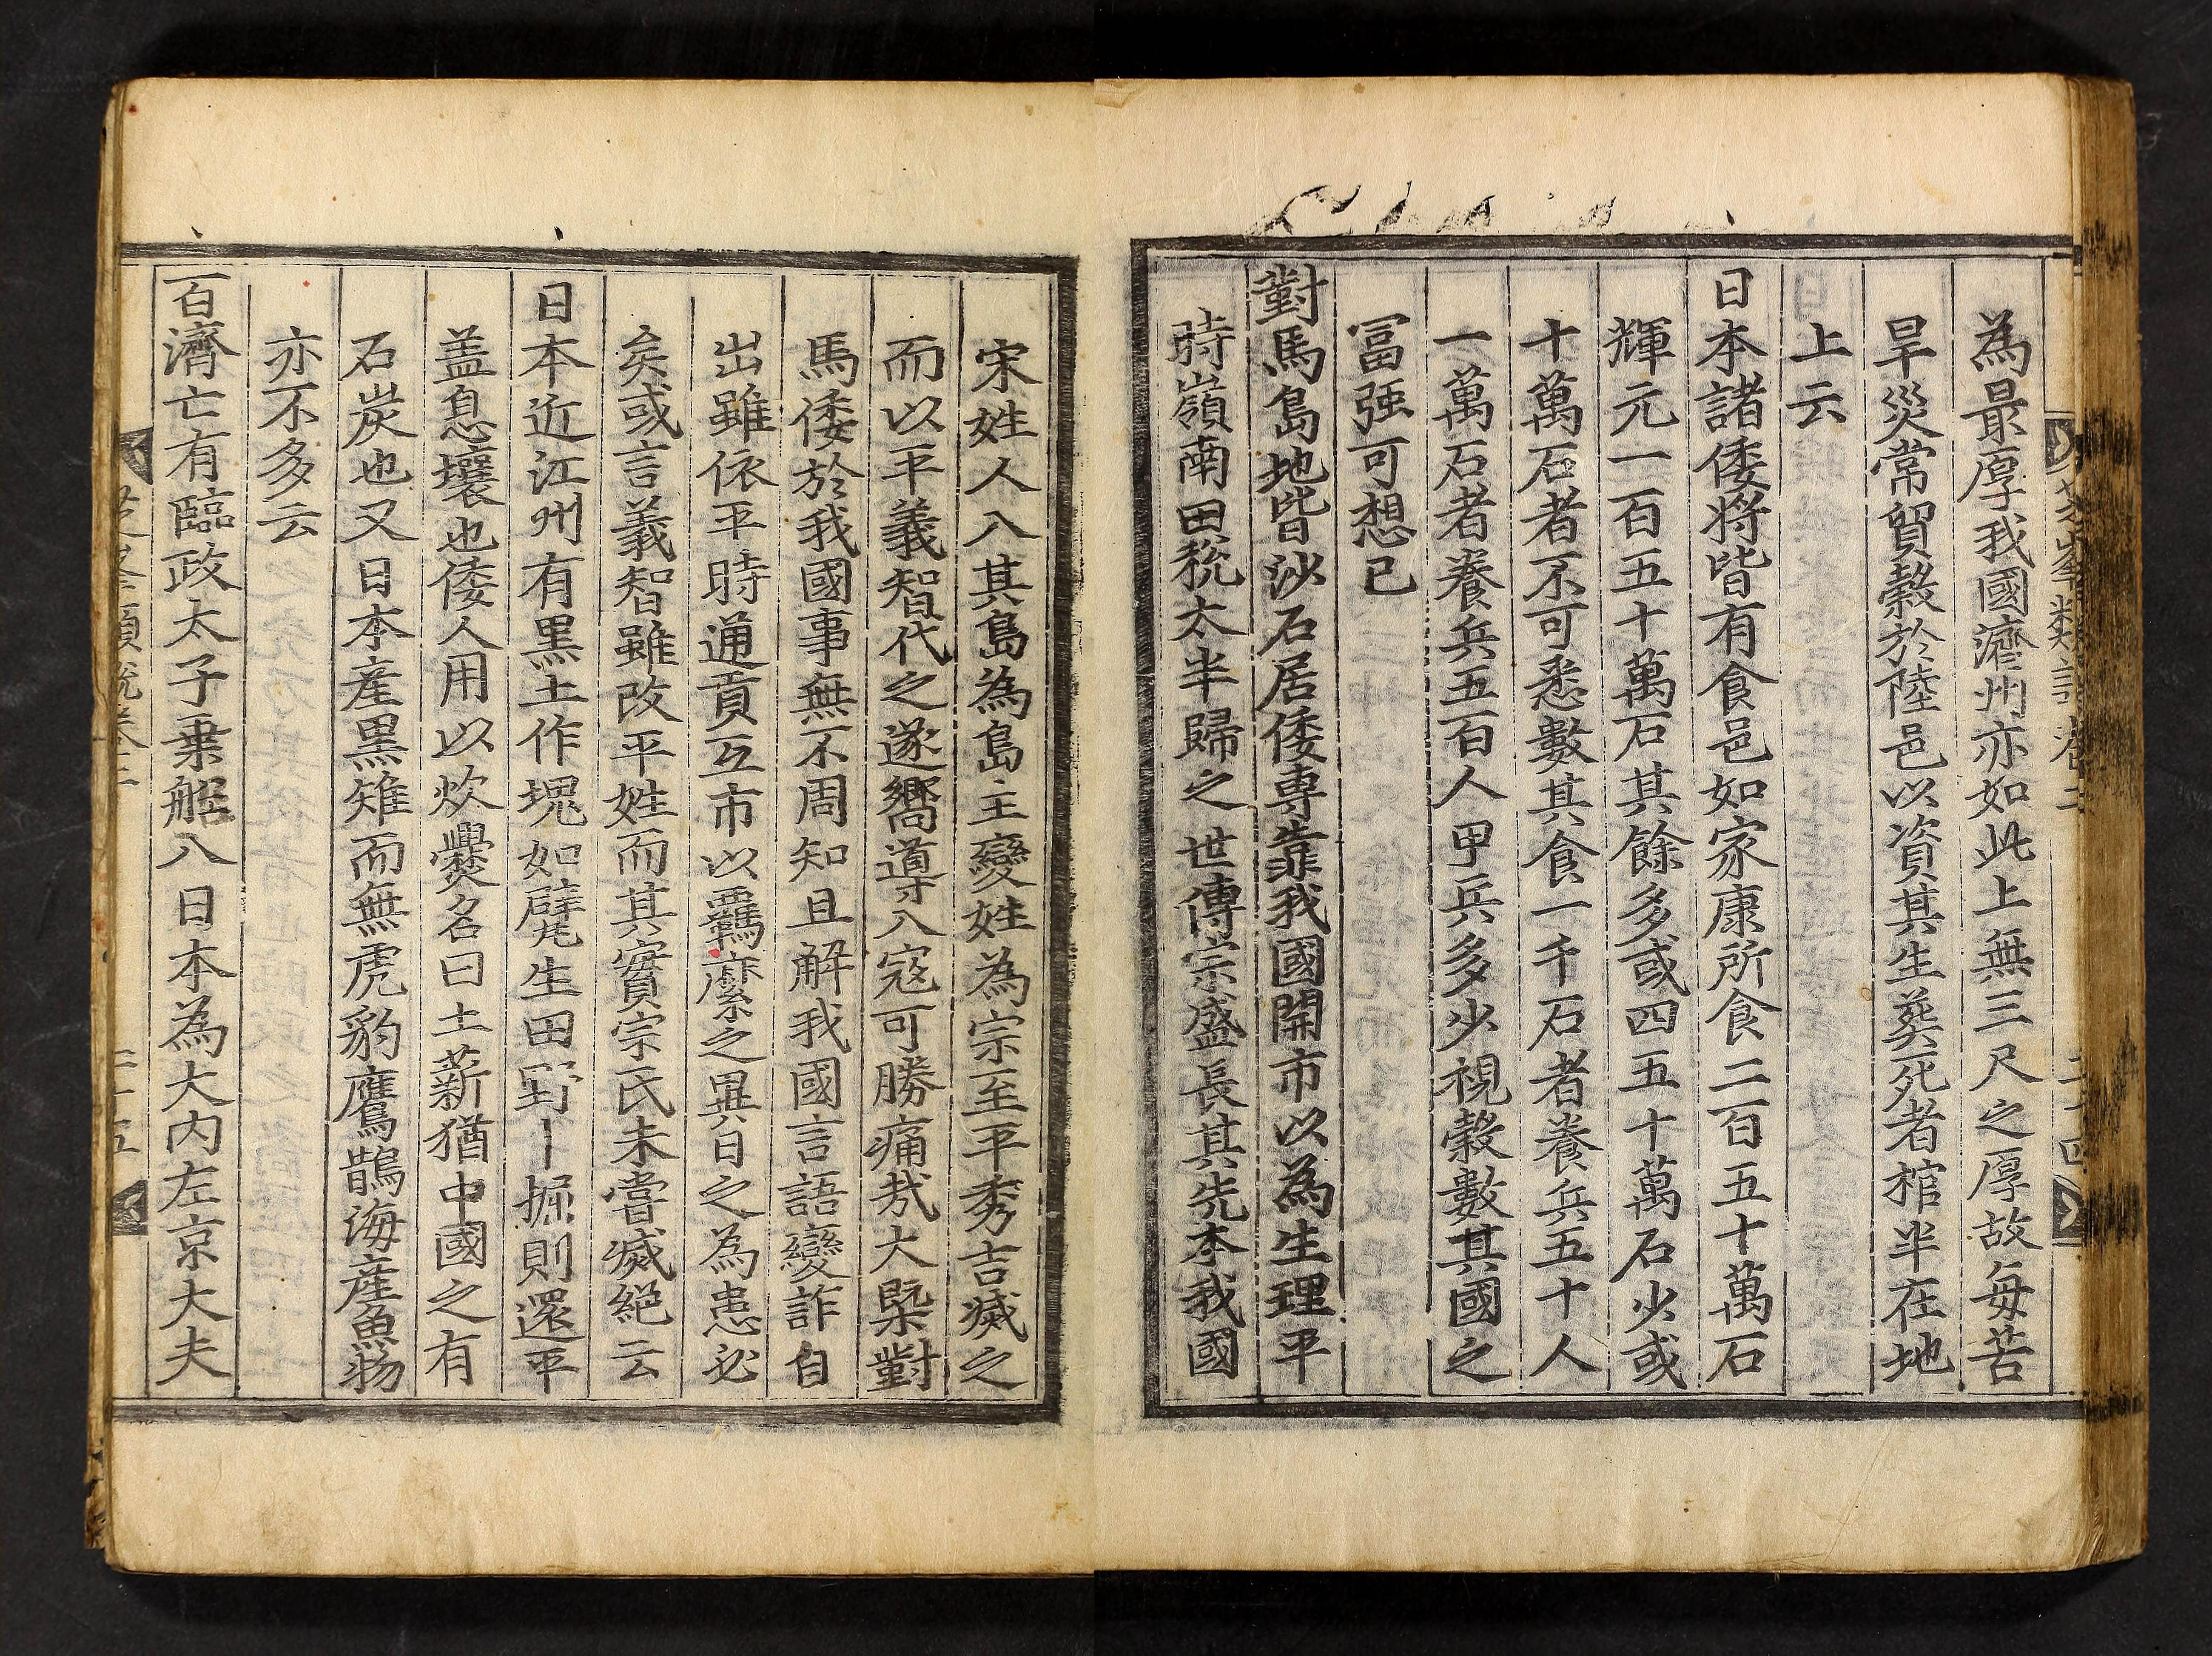 為最厚我國濟州亦如此上無三尺之厚故每苦
旱災常貿穀於陸邑以資其生葬死者棺半在地
上云
日本諸倭將皆有食邑如家康所食二百五十萬石
輝元一百五十萬石其餘多或四五十萬石少或
十萬石者不可悉數其食一千石者養兵五十人
一萬石者養兵五百人甲兵多少視穀數其國之
冨强可想已
對馬島地皆沙石居倭專靠我國開市以為生理平
時嶺南田稅太半歸之世傳宗盛長其先本我國
宋姓人入其島為島主變姓為宗至平秀吉滅之
而以平義智代之遂嚮導入寇可勝痛㢤大槩對
馬倭於我國事無不周知且解我國言語變詐百
出雖依平時通貢互市以羈縻之異日之為患必
矣或言義智雖改平姓而其實宗氏未嘗滅絕云
日本近江州有黑土作塊如甓生田野丨掘則還平
盖息壤也倭人用以炊爨名曰土薪猶中國之有
石炭也又日本產黑雉而無虎豹鷹鶻海產魚物
亦不多云
百濟亡有臨政太子乗船入日本為大内左京大夫